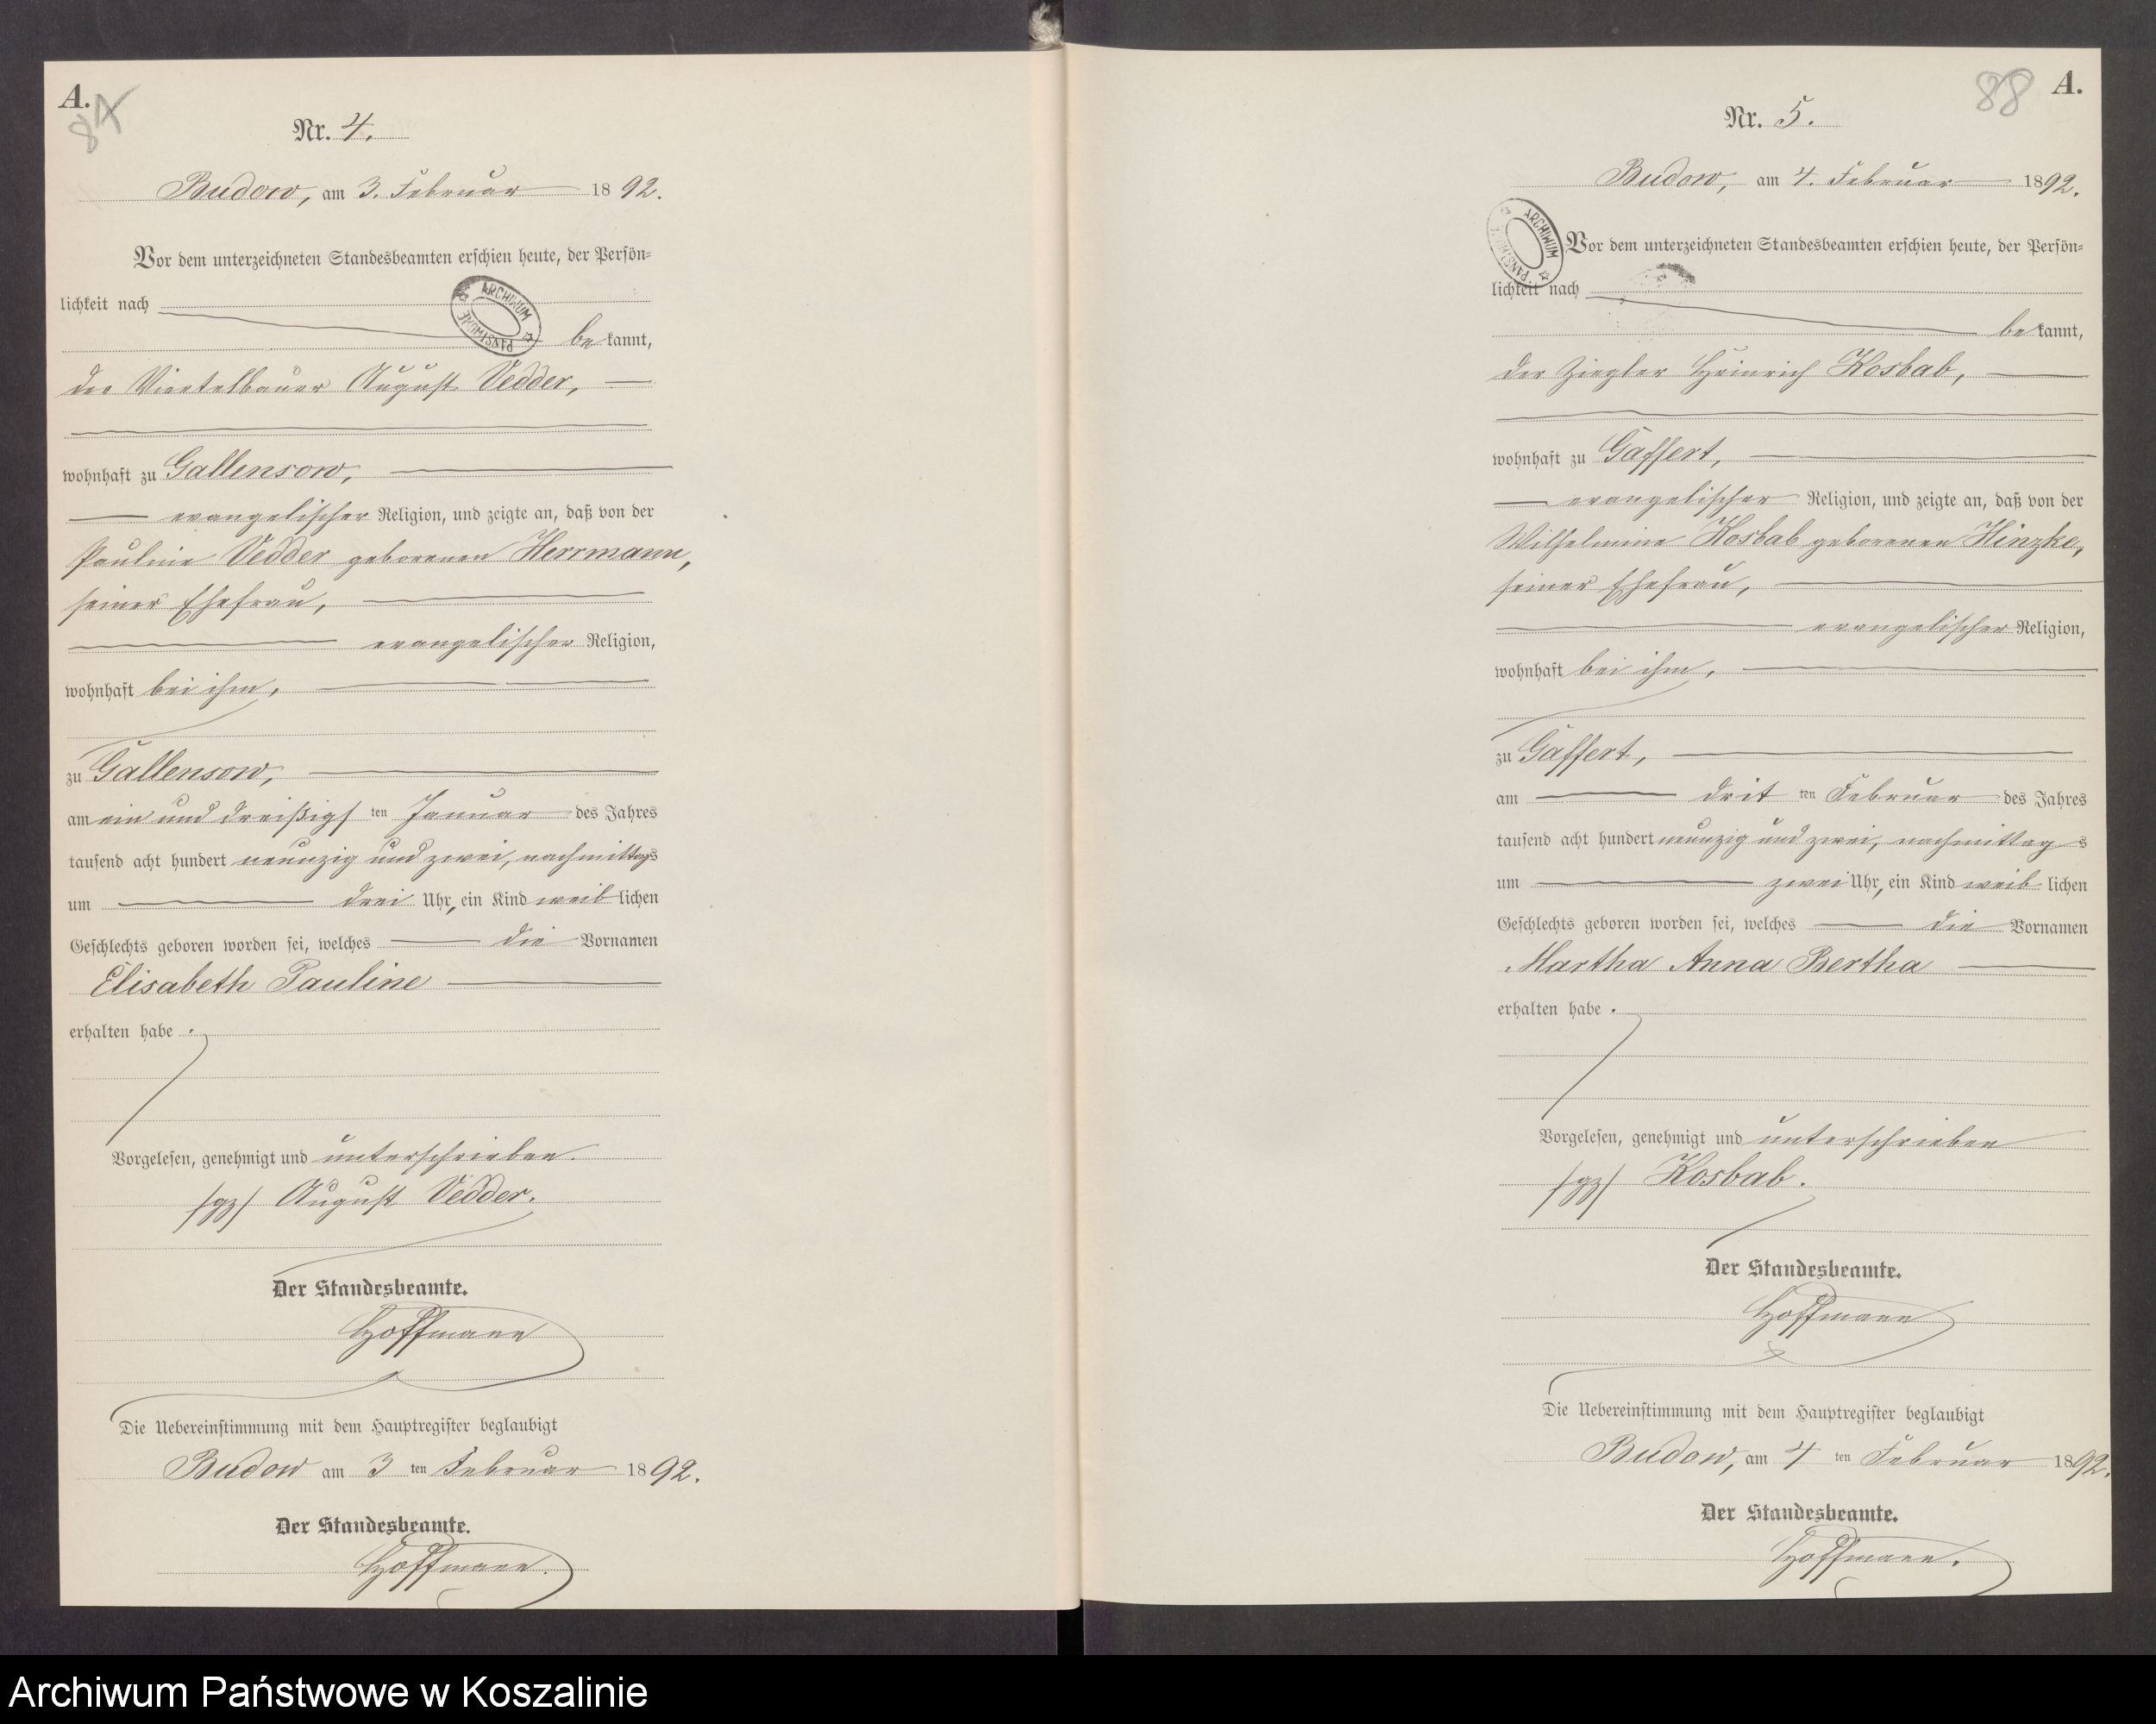 A.
87
Nr. 4.
Budow, am 3. Februar 1892.
Vor dem unterzeichneten Standesbeamten erschien heute, der Persön=
lichkeit nach
bekannt,
der Viertelbauer August Vedder,
wohnhaft zu Gallensow,
evangelischer Religion, und zeigte an, daß von der
Pauline Vedder geborenen Herrmann,
seiner Ehefrau,
evangelischer Religion,
wohnhaft bei ihm,
zu Gallensow,
am ein und dreißigsten Januar des Jahres
tausend acht hundert neunzig und zwei, nachmittags
um drei Uhr, ein Kind weiblichen
Geschlechts geboren worden sei, welches die Vornamen
Elisabeth Pauline
erhalten habe.
Vorgelesen, genehmigt und unterschrieben.
/gz/ August Vedder.
Der Standesbeamte.
Hoffmann
Die Uebereinstimmung mit dem Hauptregister beglaubigt
Budow am 3 ten Februar 1892.
Der Standesbeamte.
Hoffmann.
ARCHIWUM PAŃSTWOWE
88 A.
Nr. 5.
Budow, am 4. Februar 1892.
Vor dem unterzeichneten Standesbeamten erschien heute, der Persön=
lichkeit nach
bekannt,
der Ziegler Heinrich Kosbab,
wohnhaft zu Gaffert,
evangelischer Religion, und zeigte an, daß von der
Wilhelmine Kosbab geborenen Hinzke,
seiner Ehefrau,
evangelischer Religion,
wohnhaft bei ihm,
zu Gaffert,
am dritten Februar des Jahres
tausend acht hundert neunzig und zwei, nachmittags
um zwei Uhr, ein Kind weiblichen
Geschlechts geboren worden sei, welches die Vornamen
Martha Anna Bertha
erhalten habe.
Vorgelesen, genehmigt und unterschrieben
/gz/ Kosbab.
Der Standesbeamte.
Hoffmann
Die Uebereinstimmung mit dem Hauptregister beglaubigt
Budow, am 4 ten Februar 1892.
Der Standesbeamte.
Hoffmann.
ARCHIWUM PAŃSTWOWE
Archiwum Państwowe w Koszalinie